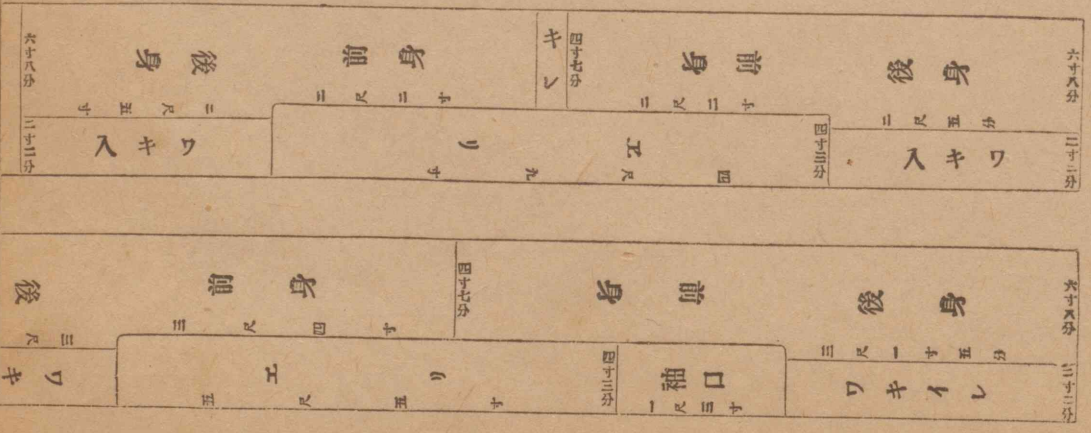 六寸八分
後身
二尺五寸
前身
二尺二寸
キレ
四寸七分
前身
二尺二寸
後身
二尺五分
六寸八分
二寸二分
ワキ入
エリ
四尺九寸
四寸三分
ワキ入
二寸二分
後
三尺
前身
三尺四寸
四寸七分
前身
後身
三尺一寸五分
六寸八分
ワキ
エリ
五尺五寸
四寸三分
袖口
一尺三寸
ワキイレ
二寸二分